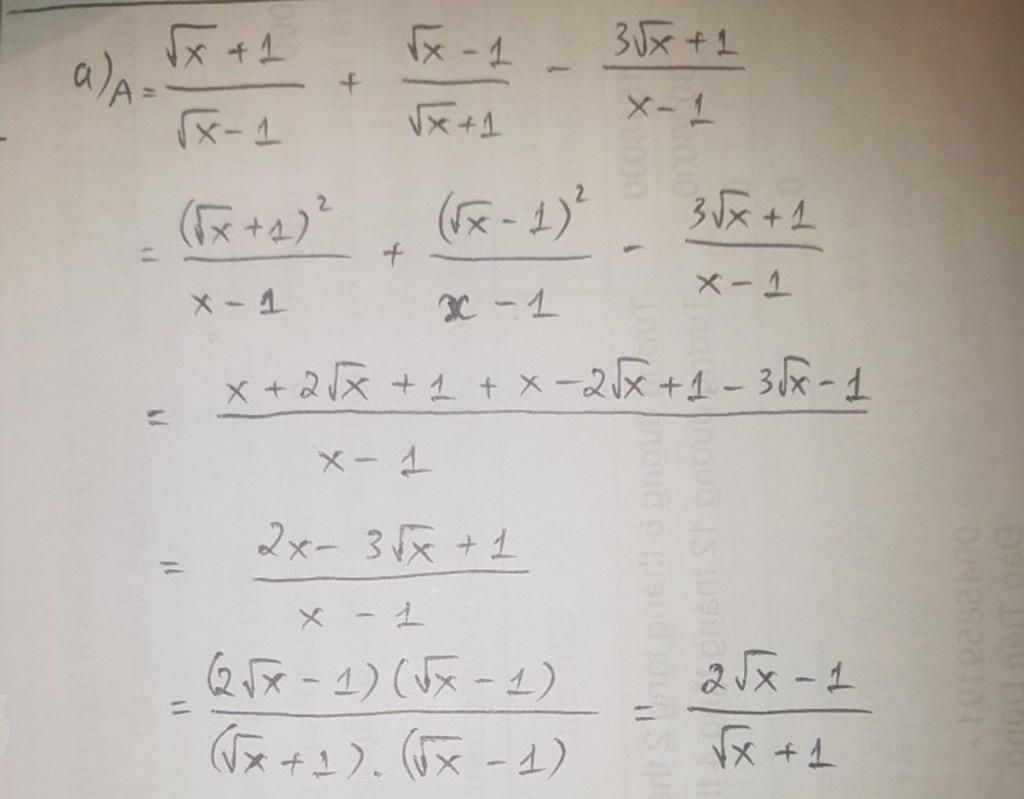 a) A = \frac{\sqrt{x}+1}{\sqrt{x}-1} + \frac{\sqrt{x}-1}{\sqrt{x}+1} - \frac{3\sqrt{x}+1}{x-1}
= \frac{(\sqrt{x}+1)^2}{x-1} + \frac{(\sqrt{x}-1)^2}{x-1} - \frac{3\sqrt{x}+1}{x-1}
= \frac{x+2\sqrt{x}+1+x-2\sqrt{x}+1-3\sqrt{x}-1}{x-1}
= \frac{2x-3\sqrt{x}+1}{x-1}
= \frac{(2\sqrt{x}-1)(\sqrt{x}-1)}{(\sqrt{x}+1).(\sqrt{x}-1)} = \frac{2\sqrt{x}-1}{\sqrt{x}+1}